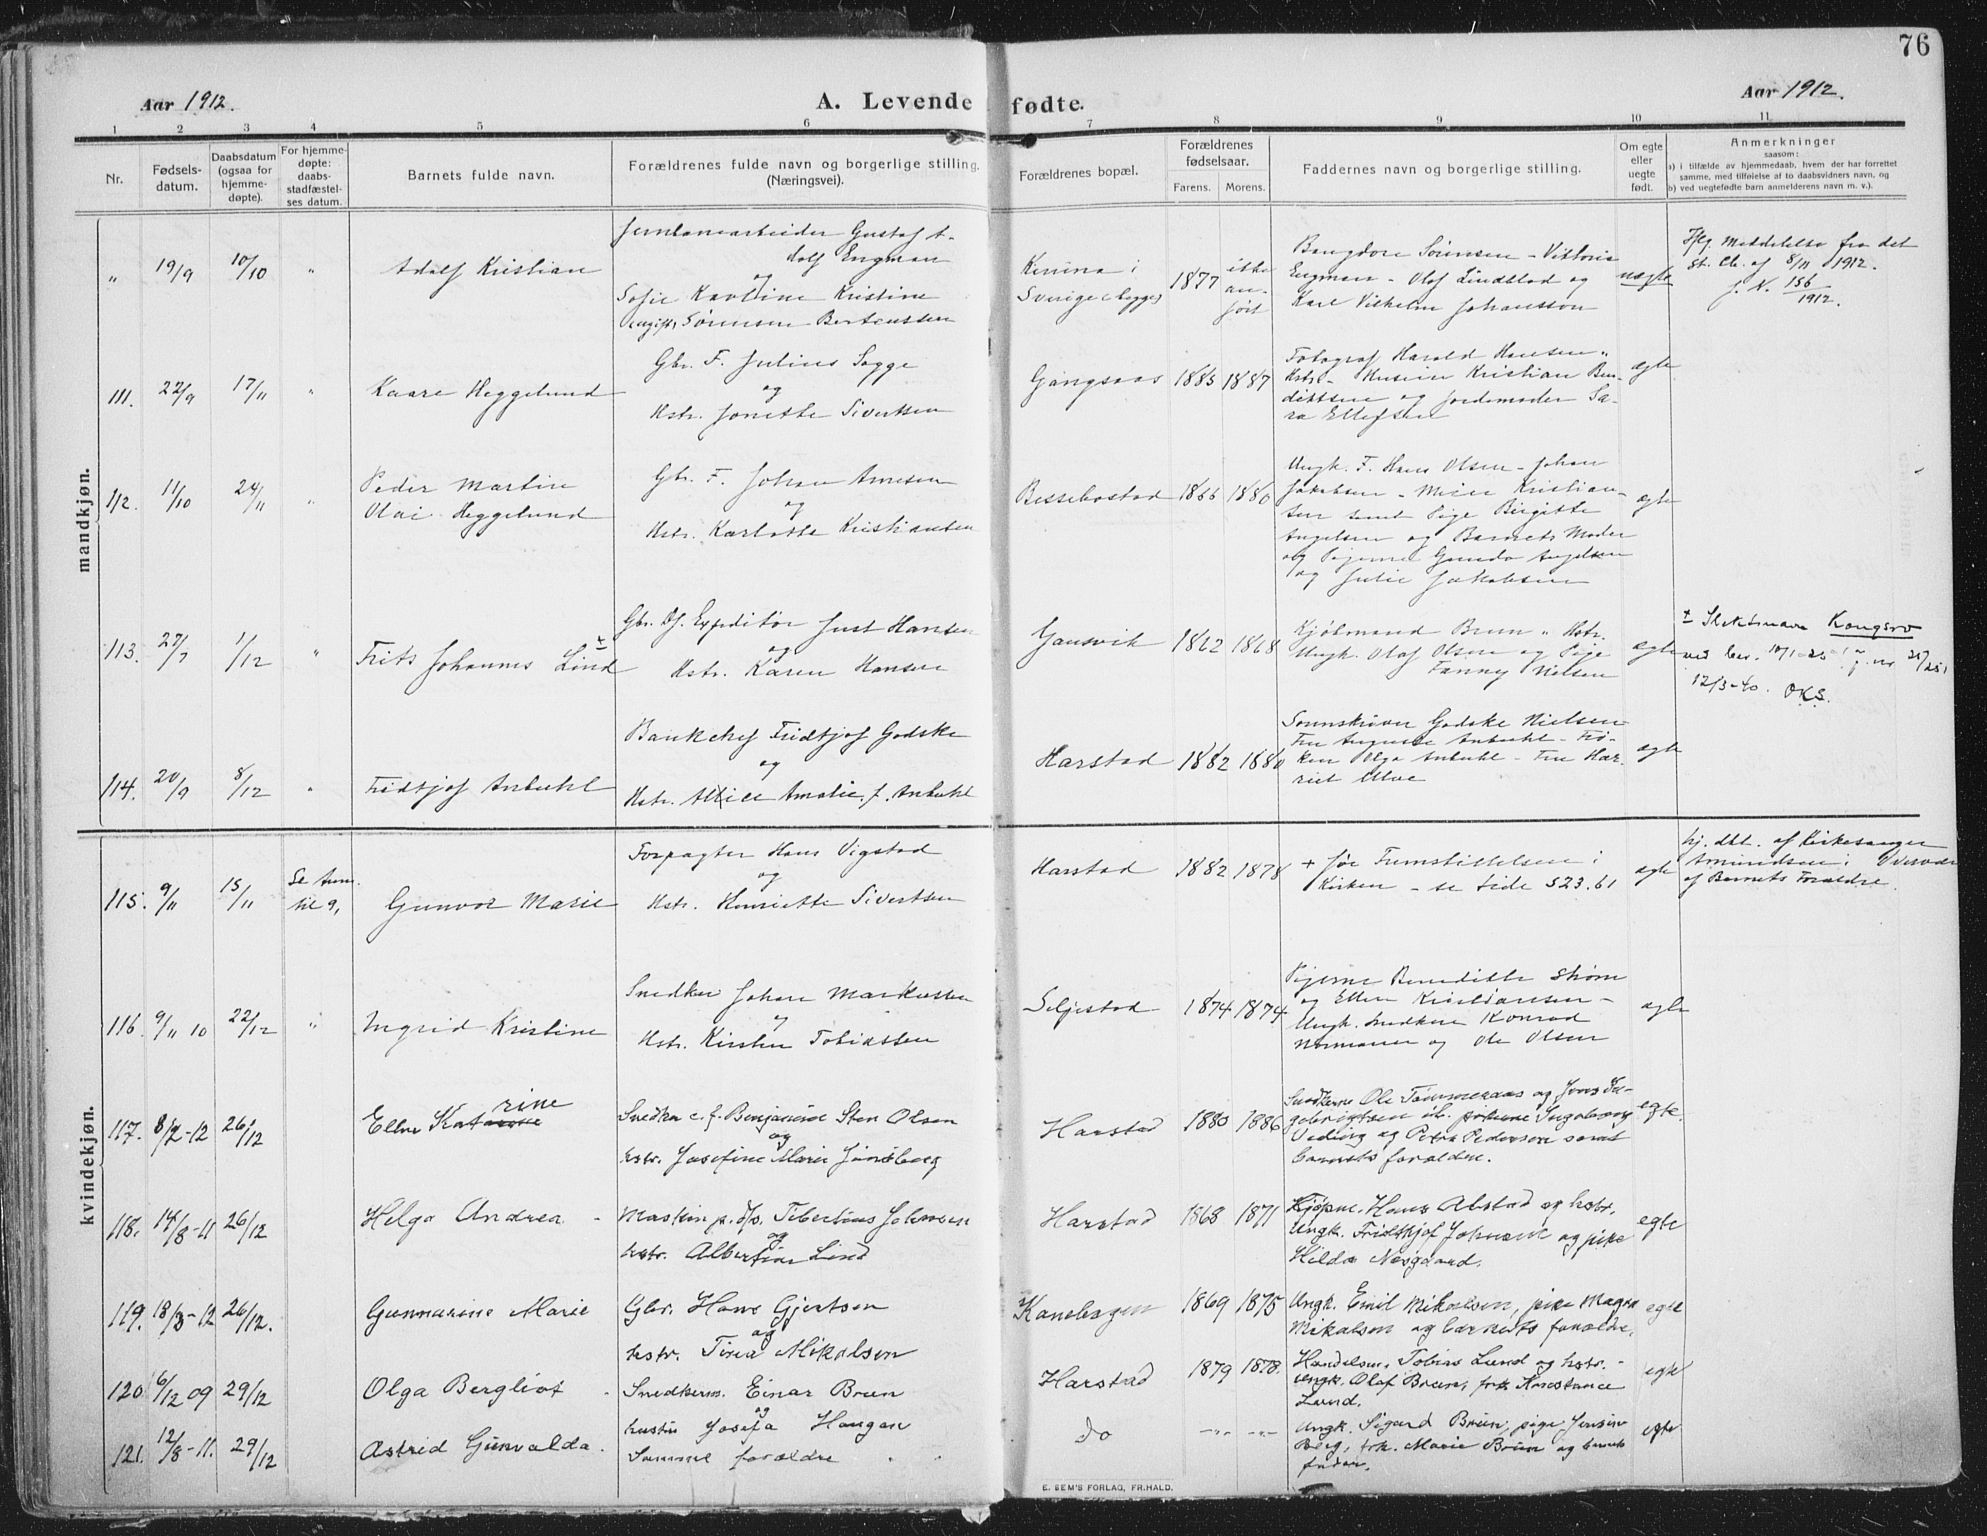 76
Aar 1912.
A. Levende fødte.
Aar 1912.
1 2 3 4 5 6 7 8 9 10 11
Nr.
Fødsels-
datum.
Daabsdatum
(ogsaa for
hjemme-
døpte).
For hjemme-
døpte:
daabs-
stadfæstel-
ses datum.
Barnets fulde navn.
Forældrenes fulde navn og borgerlige stilling.
(Næringsvei).
Forældrenes bopæl.
Forældrenes
fødselsaar.
Farens. Morens.
Faddernes navn og borgerlige stilling.
Om egte
eller
uegte
født.
Anmerkninger
saasom:
a) i tilfælde av hjemmedaab, hvem der har forrettet
samme, med tilføielse af to daabsvidners navn, og
b) ved uegtefødte barn anmelderens navn m. v.).
mandkjøn.
" 19/9 10/10 "
Adolf Kristian
Jernbanearbeider Gustaf A-
dolf Engman
og
Sofie Karoline Kristine
(ugift) Sørensen Berteussen
Kiruna i
Sverige (begge)
1877
ikke
an-
ført
Sørensen - Viktoria
Engman - Olaf Lindblad og
Karl Vilhelm Johansson
uægte
Iflg. Meddelelse fra det
st. Cb. af 8/11 1912.
J. N. 156/1912.
111. 22/9 17/11 "
Kaare Heggelund
Gbr. F. Julius Sagge
og
Hstr. Jonette Sivertsen
Gangsaas
1885 1887
Fotograf Harald Hansen "
Hstr. - Kristian Ben-
dittsen og Jordemoder Sa-
ra Ellefsen
ægte
112. 11/10 24/11 "
Peder Martin
Olai Heggelund
Gbr. F. Johan Arnesen
og
Hstr. Karlotte Kristiansen
Bessebostad
1866 1880
Ungk. F. Hans Olsen - Johan
Jakobsen - Meier Kristian-
sen samt Pige Birgitte
Angelsen og Barnets Moder
og Pigerne Gunda Angelsen
og Julie Jakobsen
ægte
113. 27/7 1/12 "
Frits Johannes Lind ±
Gbr. Df. Expeditør Just Hansen
og
Hstr. Karen Hansen
Gansvik
1862 1868
Kjøbmand Brun " Hstr.
Ungk. Olaf Olsen og Pige
Fanny Nielsen
ægte
± Slektsnavn Kongsro
ved bev. 10/1-25
12/3-40. OKS.
114. 20/9 8/12 "
Fridtjof Anbuhl
Bankchef Fridtjof Godske
og
Hstr. Allice Amalie f. Anbuhl
Harstad
1882 1880
Godske Nielsen
Fru Auguste Anbuhl - Frø-
ken Olga Anbuhl - Fru Har-
riet Ulve
ægte
kvindekjøn.
115. 9/11 15/11
Se Anm.
til 9,
Gunvor Marie
Forpagter Hans Vigstad
og
Hstr. Henriette Sivertsen
Harstad
1882 1878
+ før Fremstillelsen i
Kirken - se side 523.61
ægte
hj. dbt. af Kirkesanger
Amundsen i Overvær
af Barnets Forældre.
116. 9/11 10 22/12 "
Ingrid Kristine
Snedker Johan Markussen
og
Hstr. Kirsten Tobiassen
Seljestad
1874 1874
Pigerne Benedikte Strøm
og Ellen Kristiansen -
Ungk. Snedkere Konrad
Normann og Ole Olsen
ægte
117. 8/2-12 26/12
Ellen Katarine
Snedker e. f. Benjamin Sten Olsen
og
hstr. Josefine Marie Jonsberg
Harstad
1880 1886
Snedkerne Ole Tømmeraas og Jens In-
gebrigtsen ib. pikerne Ingeborg
Vedvig og Petra Pedersen samt
barnets forælden.
egte.
118. 14/8-11 26/12
Helga Andrea
Maskin p. d/s. Tiberius Johnsen
og
hstr. Albertine Lind
Harstad
1868 1871
Kjøpm. Hans Alstad og hstr.
Ungk. Fridthjof Johnsen og pike
Hilda Nesgaard.
egte
119. 18/3-12 26/12.
Gunnarine Marie
Gbr. Hans Gjertsen
og
hstr. Tina Mikalsen
Kanebogen
1869 1875
Ungk. Emil Mikalsen, pike Magna
Mikalsen og barnets forældre.
egte
120. 6/12 09 29/12
Olga Bergliot
Snedkerm. Einar Bruun
og
hustru Josefa Haugan
Harstad
1879 1878.
Handelsm. Tobias Lund og hstr. -
ungk. Olaf Bruun, frk. Konstance
Lund.
egte
121. 12/8-11. 29/12
Astrid Gunvalda.
Samme forældre
do
-"- -"-
Ungk. Sigurd Bruun, pige Jensine
Berg, frk. Marie Bruun og barnets
fader.
egte
E. SEM'S FORLAG, FR.HALD.